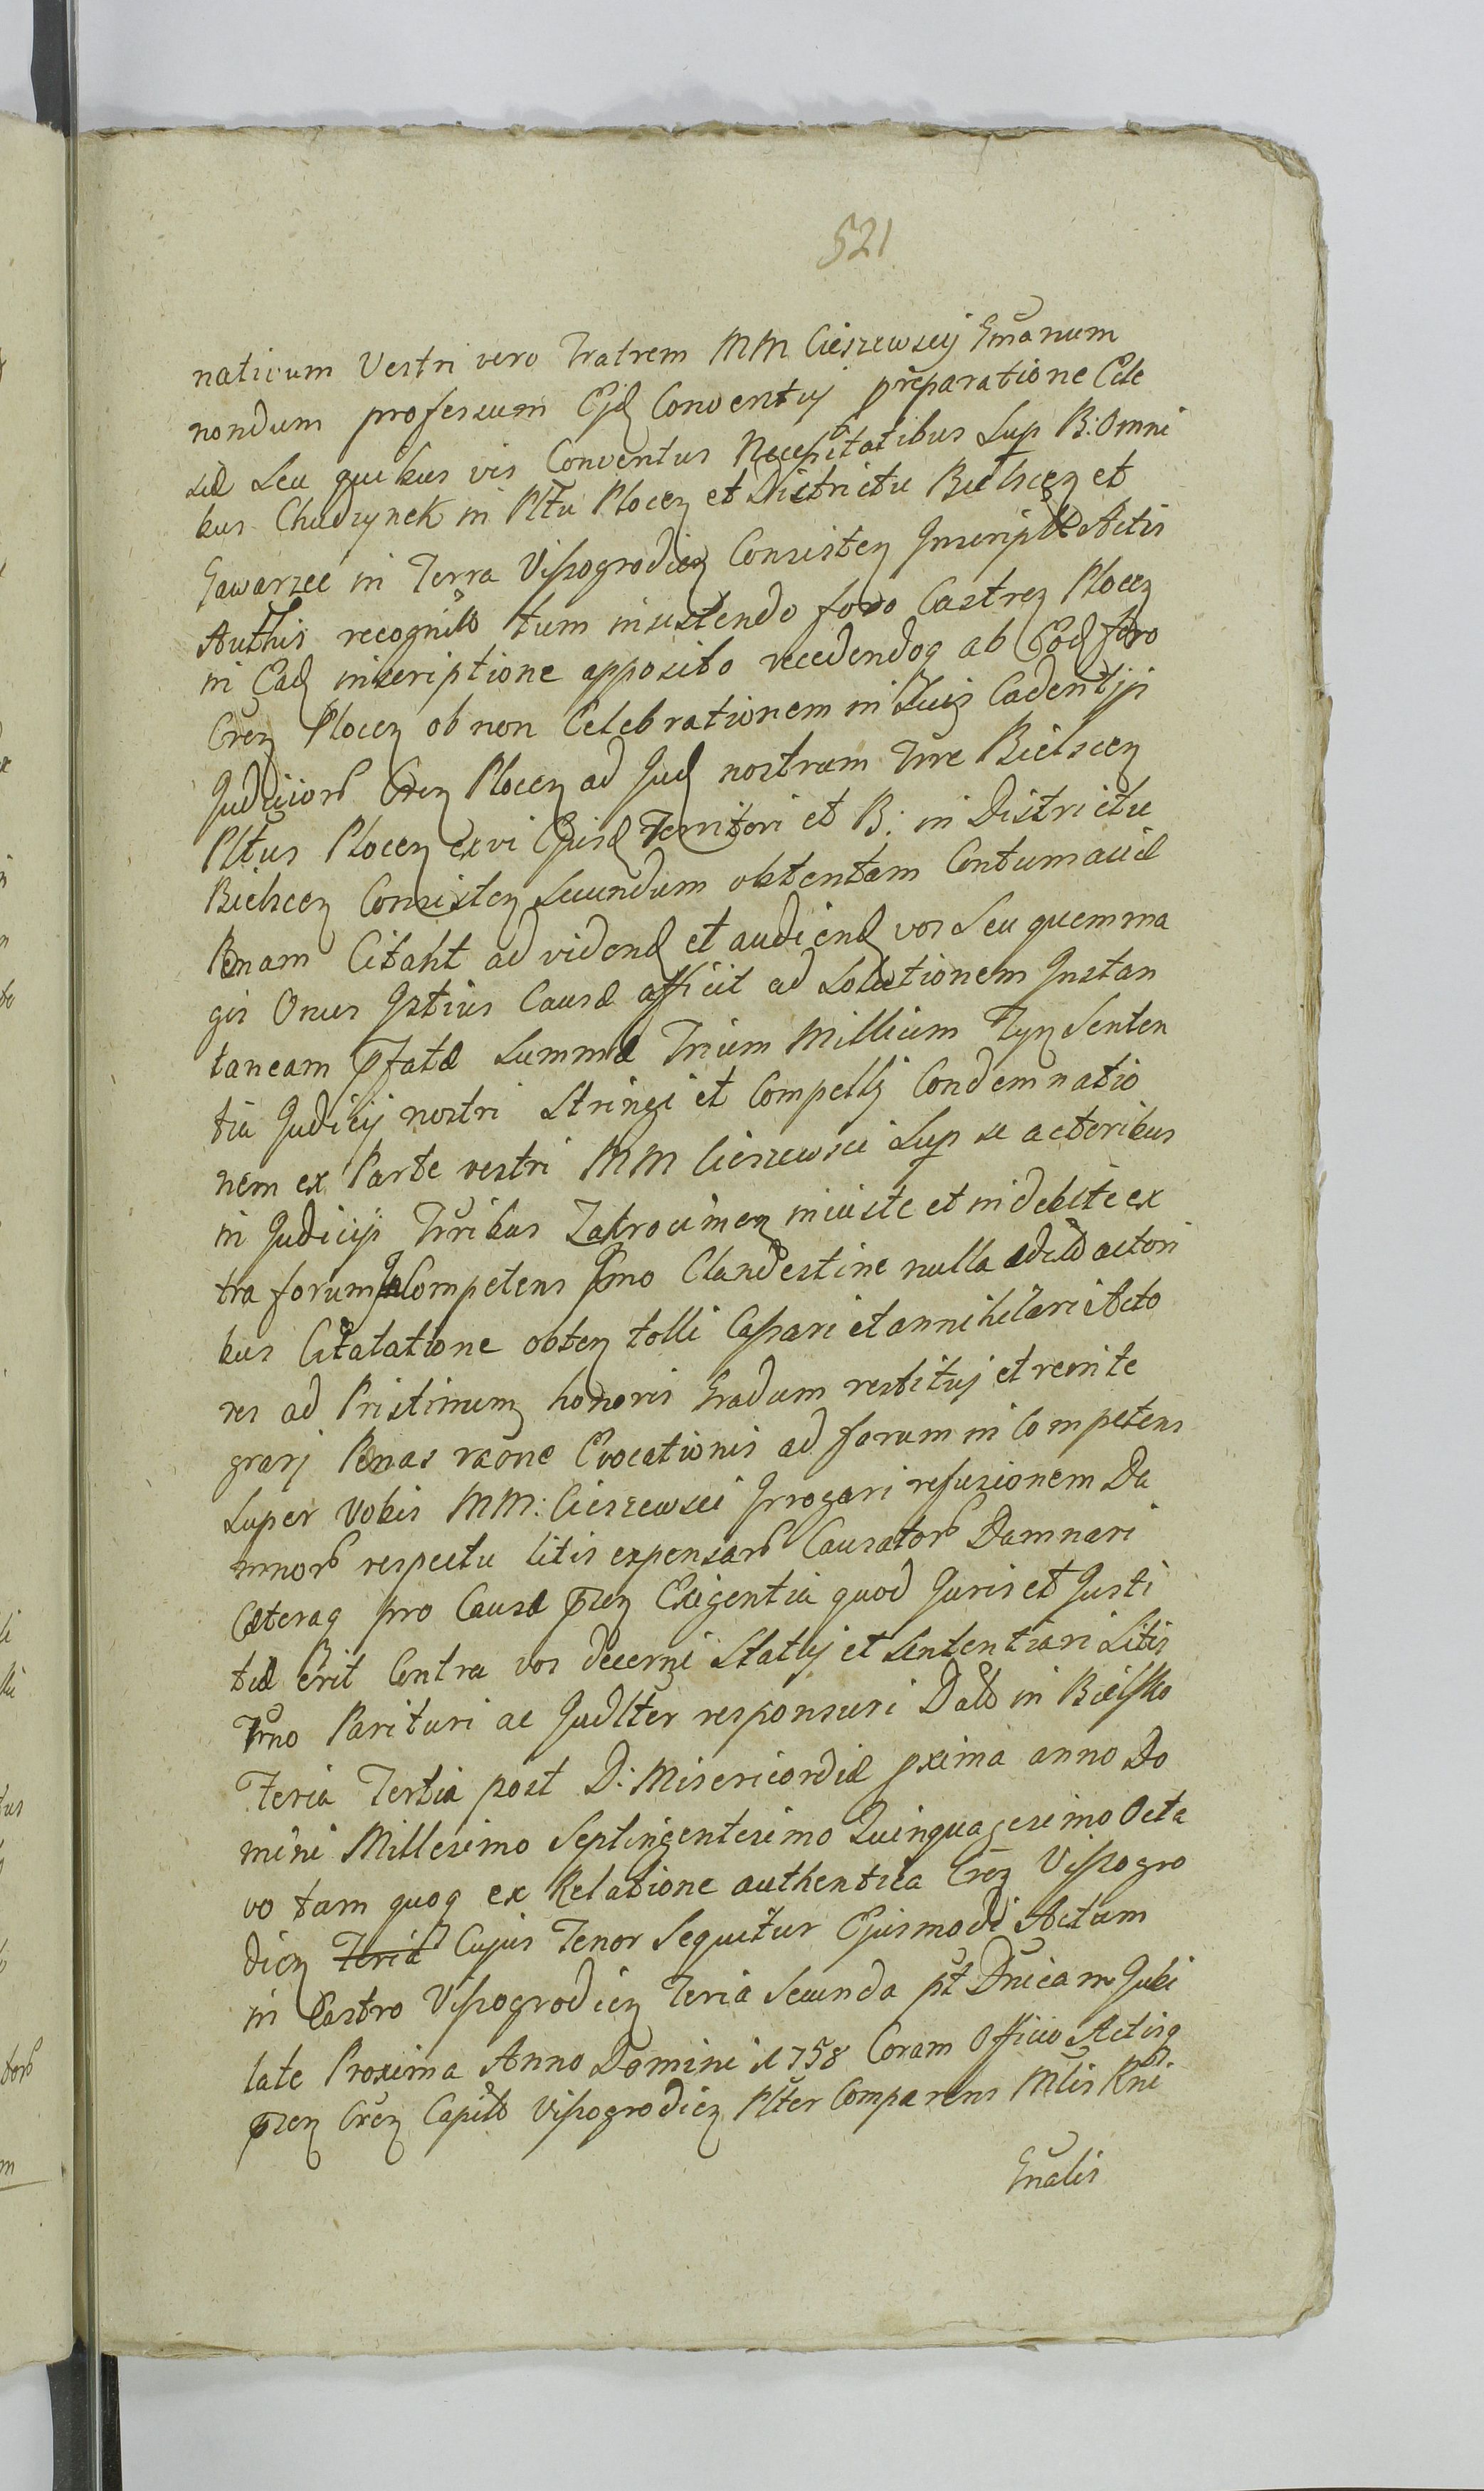 521
naticum Vestri vero Fratrem MM Cieszewscij Gmanum
nondum professum Ejd Conventuj pręparatione Ccle
siæ Seu quibus vis Conventus Necessitatibus Sup B: Omni
bus Chudzynek in Pltu Plocen et Districtu Bielscen et
Gawarzec in Terra Vissogrodien Consisten Inscriptæ Actis
Authis recognito tum insistendo foro Castren Plocen
in Ead inscriptione apposito recedendoq ab Eod foro
Cren Plocen ob non Celebrationem in Suis Cadentijs
Judiciorb Cren Plocen ad Jud nostrum Trre Bielscen
Pltus Plocen ex vi Ejusd Territori et B: in Districtu
Bielscen Consisten Secundum obtentam Contumaciæ
Pænam Citant ad vidend et audiend vos Seu quemma
gis Onus Istius Causæ afficit ad Solutionem Instan
taneam Pfatæ Summæ Trium Millium Fpn Senten
tia Judicij nostri Stringi et Compelli Condemnatio
nem ex Parte vestri MM Cieszewsci Sup se actoribus
in Judicijs Trribus Zakrocimen iniuste et indebite ex
tra forum Competens Imo Clandestine nulla ædita actori
bus Citatatione obten tolli Cassari et annihilari Acto
res ad Pristinum honoris Gradum restituj et reinte
grarj Pænas raone Evocationis ad forum in Competens
Super Vobis MM: Cieszewsci Irrogari refusionem Da
mnorb respectu litis expensarb Causatorb Damnari
Cæteraq pro Causæ Pzen Exigentia quod Juris et Justi
tiæ Erit Contra vos decerni Statuj et Sententiari Sitis
Trno Parituri ac Judlter responsuri Datb in Bielsko
Feria Tertia post D: Misericordiæ pxima anno Do
mini Millesimo Septingentesimo Quinquagesimo Octa
vo tam quoq ex Relatione authentica Cren Vissogro
dien Feria Cujus Tenor Sequitur Ejusmodi Actum
in Castro Vissogrodien Feria Secunda pt Dnicam Jubi
late Proxima Anno Domini 1758 Coram Officio Actisq
Pzen Cren Capitb Vissogrodien Plter Comparens Mlis Rni
Gnalis